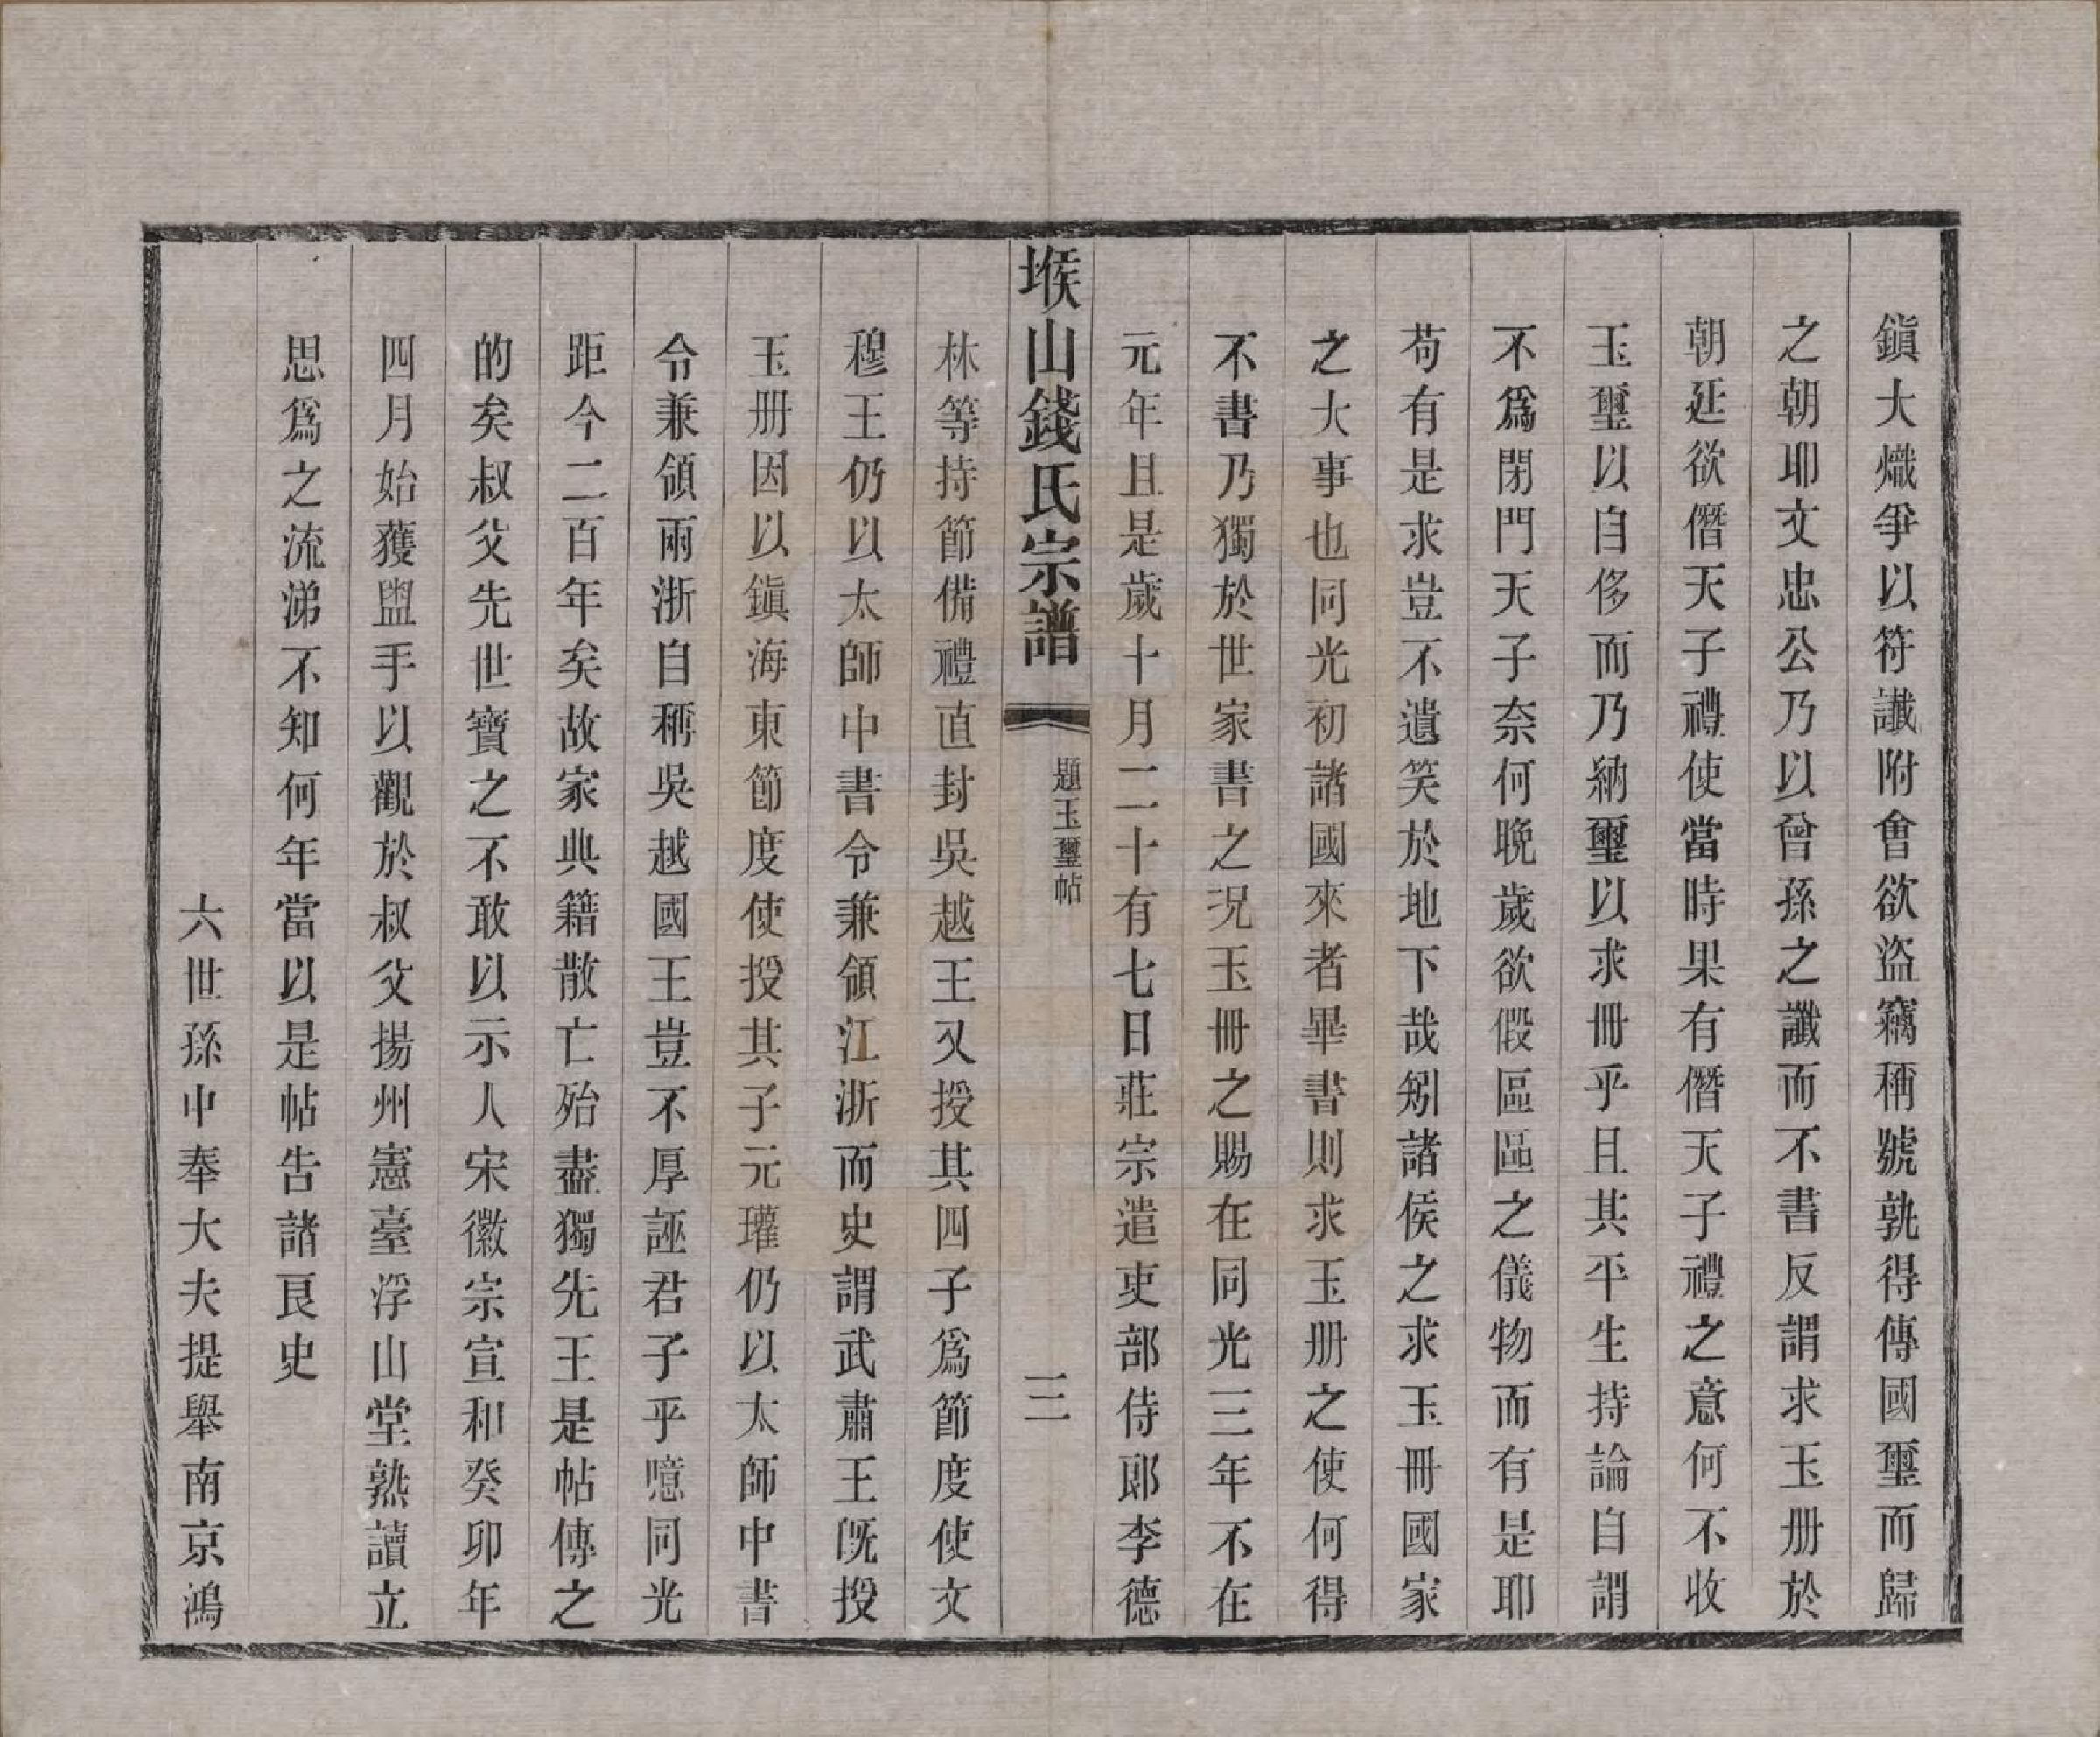 鎮大熾爭以符讖附會欲盜竊稱號孰得傳國璽而歸
之朝耶文忠公乃以曾孫之讖而不書反謂求玉册於
朝延欲僭天子禮使當時果有僭天子禮之意何不收
玉璽以自侈而乃納璽以求冊乎且其平生持論自謂
不爲閉門天子奈何晚歲欲假區區之儀物而有是耶
苟有是求豈不遺笑於地下哉矧諸侯之求玉冊國家
之大事也同光初諸國來者畢書則求玉册之使何得
不書乃獨於世家書之況玉冊之賜在同光三年不在
元年且是歲十月二十有七日莊宗遣吏部侍郎李德
堠山錢氏宗譜 題玉璽帖 三
林等持節備禮直封吳越王又授其四子爲節度使文
穆王仍以太師中書令兼領江浙而史謂武肅王旣授
玉册因以鎮海東節度使授其子元瓘仍以太師中書
令兼領兩浙自稱吳越國王豈不厚誣君子乎噫同光
距今二百年矣故家典籍散亡殆盡獨先王是帖傳之
的矣叔父先世寶之不敢以示人宋徽宗宣和癸卯年
四月始獲盥手以觀於叔父揚州憲臺浮山堂熟讀立
思爲之流涕不知何年當以是帖告諸良史
六世孫中奉大夫提舉南京鴻